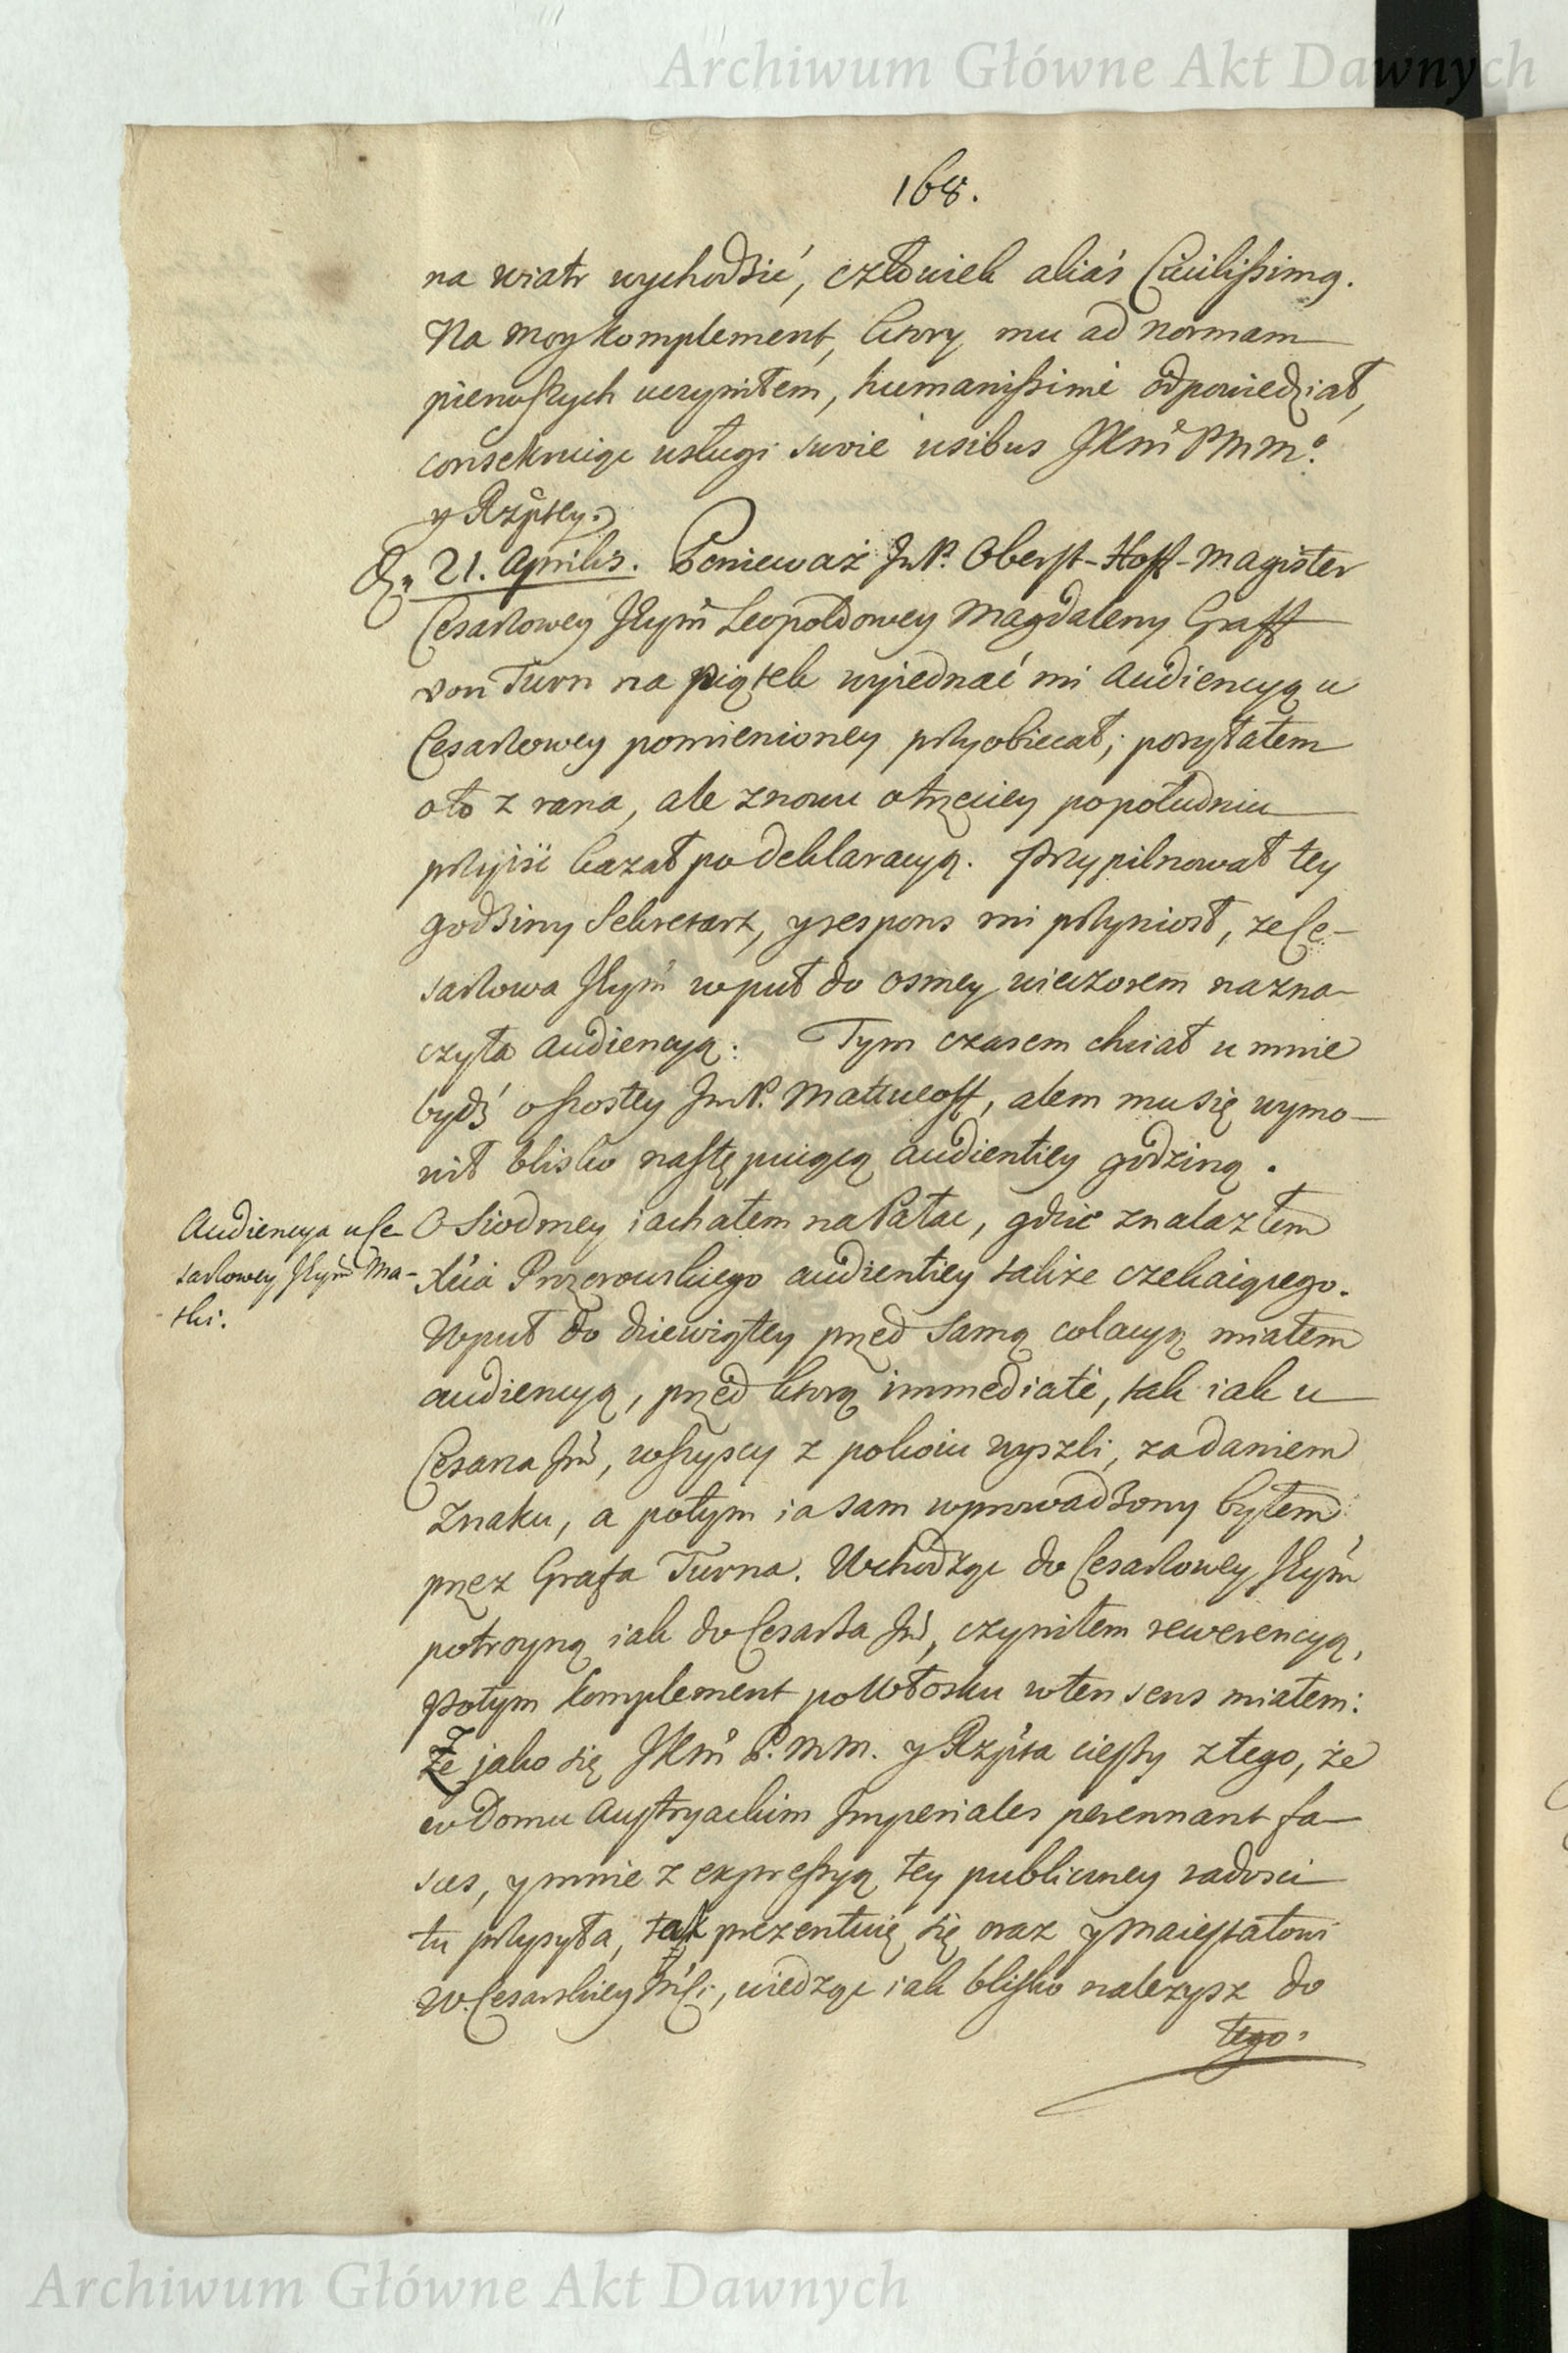 Archiwum Główne Akt Dawnych
168.
na wiatr wychodzić, człowiek aliás Civilissimg.
Na moy komplement, ktory mu ad normam
pierwszych uczyniłem, humanissimè odpowiedział,
consekruiąc usługi swoie usibus JKmci PMM.
y Rzptey.
D. 21. Aprilis. Ponieważ JmP. Oberst-Hoff-Magister
Cesarzowey Jeym Leopoldowey Magdaleny Graff
von Turn na piątek wyiednać mi audiencyą u
Cesarzowey pomienioney przyobiecał; posyłałem
oto z rana, ale znowu o trzeciey popołudniu
przyiść kazał po deklaracyą. Przypilnował tey
godziny Sekretarz, y respons mi przyniosł, że Ce-
sarzowa Jeym wpuł do osmey wieczorem nazna-
czyła audiencyą. Tym czasem chciał u mnie
bydź o szostey JmP. Matueoff, alem mu się wymo-
wił blisko następuiącą audientiey godziną.
Audiencya u Ce-
sarzowey Jeym Ma-
tki.
O Siodmey iachałem na Pałac, gdzie znalazłem
Xcia Prozorowskiego audientiey także czekaiącego.
Wpuł do dziewiątey przed samą colacyą miałem
audiencyą, przed ktorą immediatè, tak iak u
Cesarza Jm, wszyscy z pokoiu wyszli, za daniem
znaku, a potym ia sam wprowadzony byłem
przez Grafa Turna. Wchodząc do Cesarzowey Jeym
potroyną iak do Cesarza Jm, czyniłem rewerencyą,
Potym komplement po Włosku w ten sens miałem:
Że jako się JKm P.MM. y Rzpta cieszy z tego, że
w Domu Austryackim Imperiales perennant fa-
sces, y mnie z expressyą tey publiczney radości
tu przysyła, tak prezentuię się oraz y Maiestatowi
W. Cesarskiey Mści, wiedząc iak blisko należysz do
tego.
Archiwum Główne Akt Dawnych